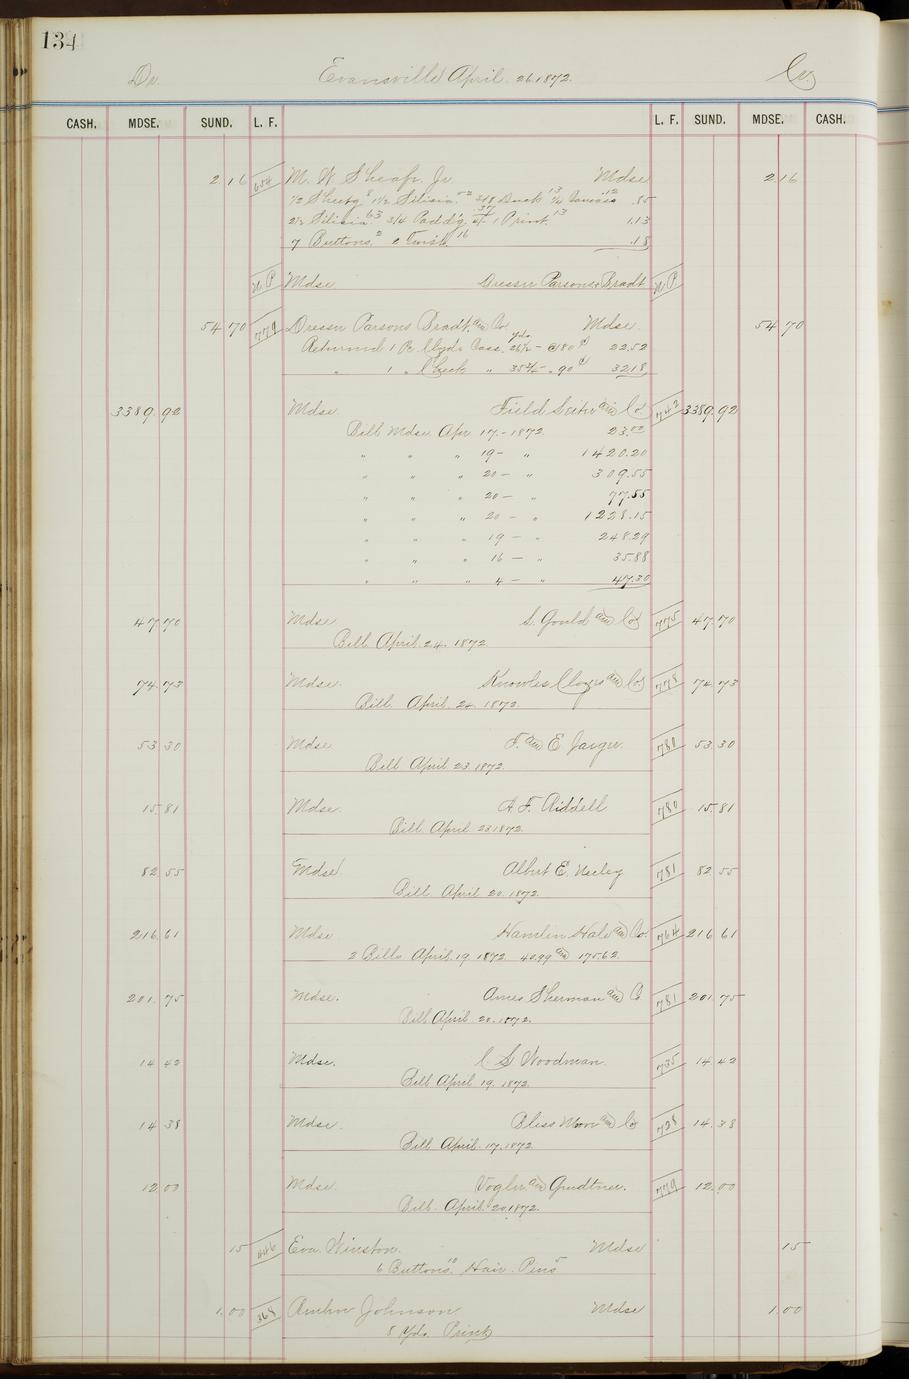 134
Dr. Evansville April. 26. 1872. Cr
CASH. MDSE. SUND. L. F. L. F. SUND. MDSE. CASH.
2.16 654 M. W. Sheafe Jr Mdse 2.16
1/2 Sheetg 8 1 1/2 Silisia Duck 13 Canvass 12 .85
2 1/2 Silisia 63 3/4 Padd'g 1 Print 13 1.13
7 Buttons 2 2 Twist 16 .18
N.P Mdse Dresser Parsons Bradt N.P
54 70 779 Dresser Parsons Bradt. and Co Mdse. 54 70
Returned 1 Pc. Clyde Cass. yds. 26 1/2 - @ 80¢ 22.52
" 1 " Check " 35 3/4 - " 90¢ 32.18
3389.92 Mdse. Field Leiter and Co 742 3389.92
Bill Mdse. Apr 17.- 1872 23.00
" " " 19- " 1420.20
" " " 20- " 309.55
" " " 20- " 77.55
" " " 20- " 1228.15
" " " 19- " 248.29
" " " 16- " 35.88
" " " 4- " 47.30
47.70 Mdse. S. Gould and Co 775 47.70
Bill April. 24. 1872.
74.73 Mdse. Knowles Cloyes and Co 778 74.73
Bill. April. 24. 1872.
53 30 Mdse. F. and E. Jaeger. 780 53 30
Bill April 23. 1872.
15.81 Mdse. A F. Riddell 780 15.81
Bill. April 23 1872.
82 55 Mdse. Albert E. Neeley 781 82 55
Bill. April 20. 1872.
216.61 Mdse. Hamlin Hale and Co. 764 216 61
2 Bills April. 19. 1872 40.99 and 175.62.
201.75 Mdse. Ames Sherman and Co 781 201.75
Bill April. 20. 1872.
14 42 Mdse. C S Woodman. 735 14 42
Bill April 19. 1872.
14 38 Mdse. Bliss Moore and Co 728 14.38
Bill April. 17. 1872.
12 00 Mdse. Vogler and Gendtner. 779 12.00
Bill. April. 20 1872.
15 446 Eva. Winston. Mdse 15
6 Buttons. 10 Hair. Pins 5
1.00 368 Johnson Mdse 1.00
8 Yds. Print